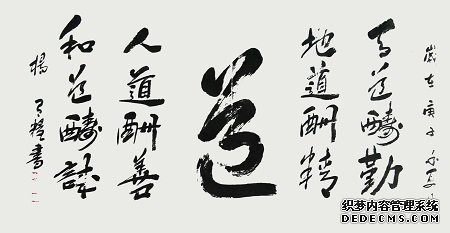 歲在庚子
天道醻勤
地道酬精
道
人道酬善
和道醻誠
楊 書
织梦内容管理系统
DEDECMS.COM